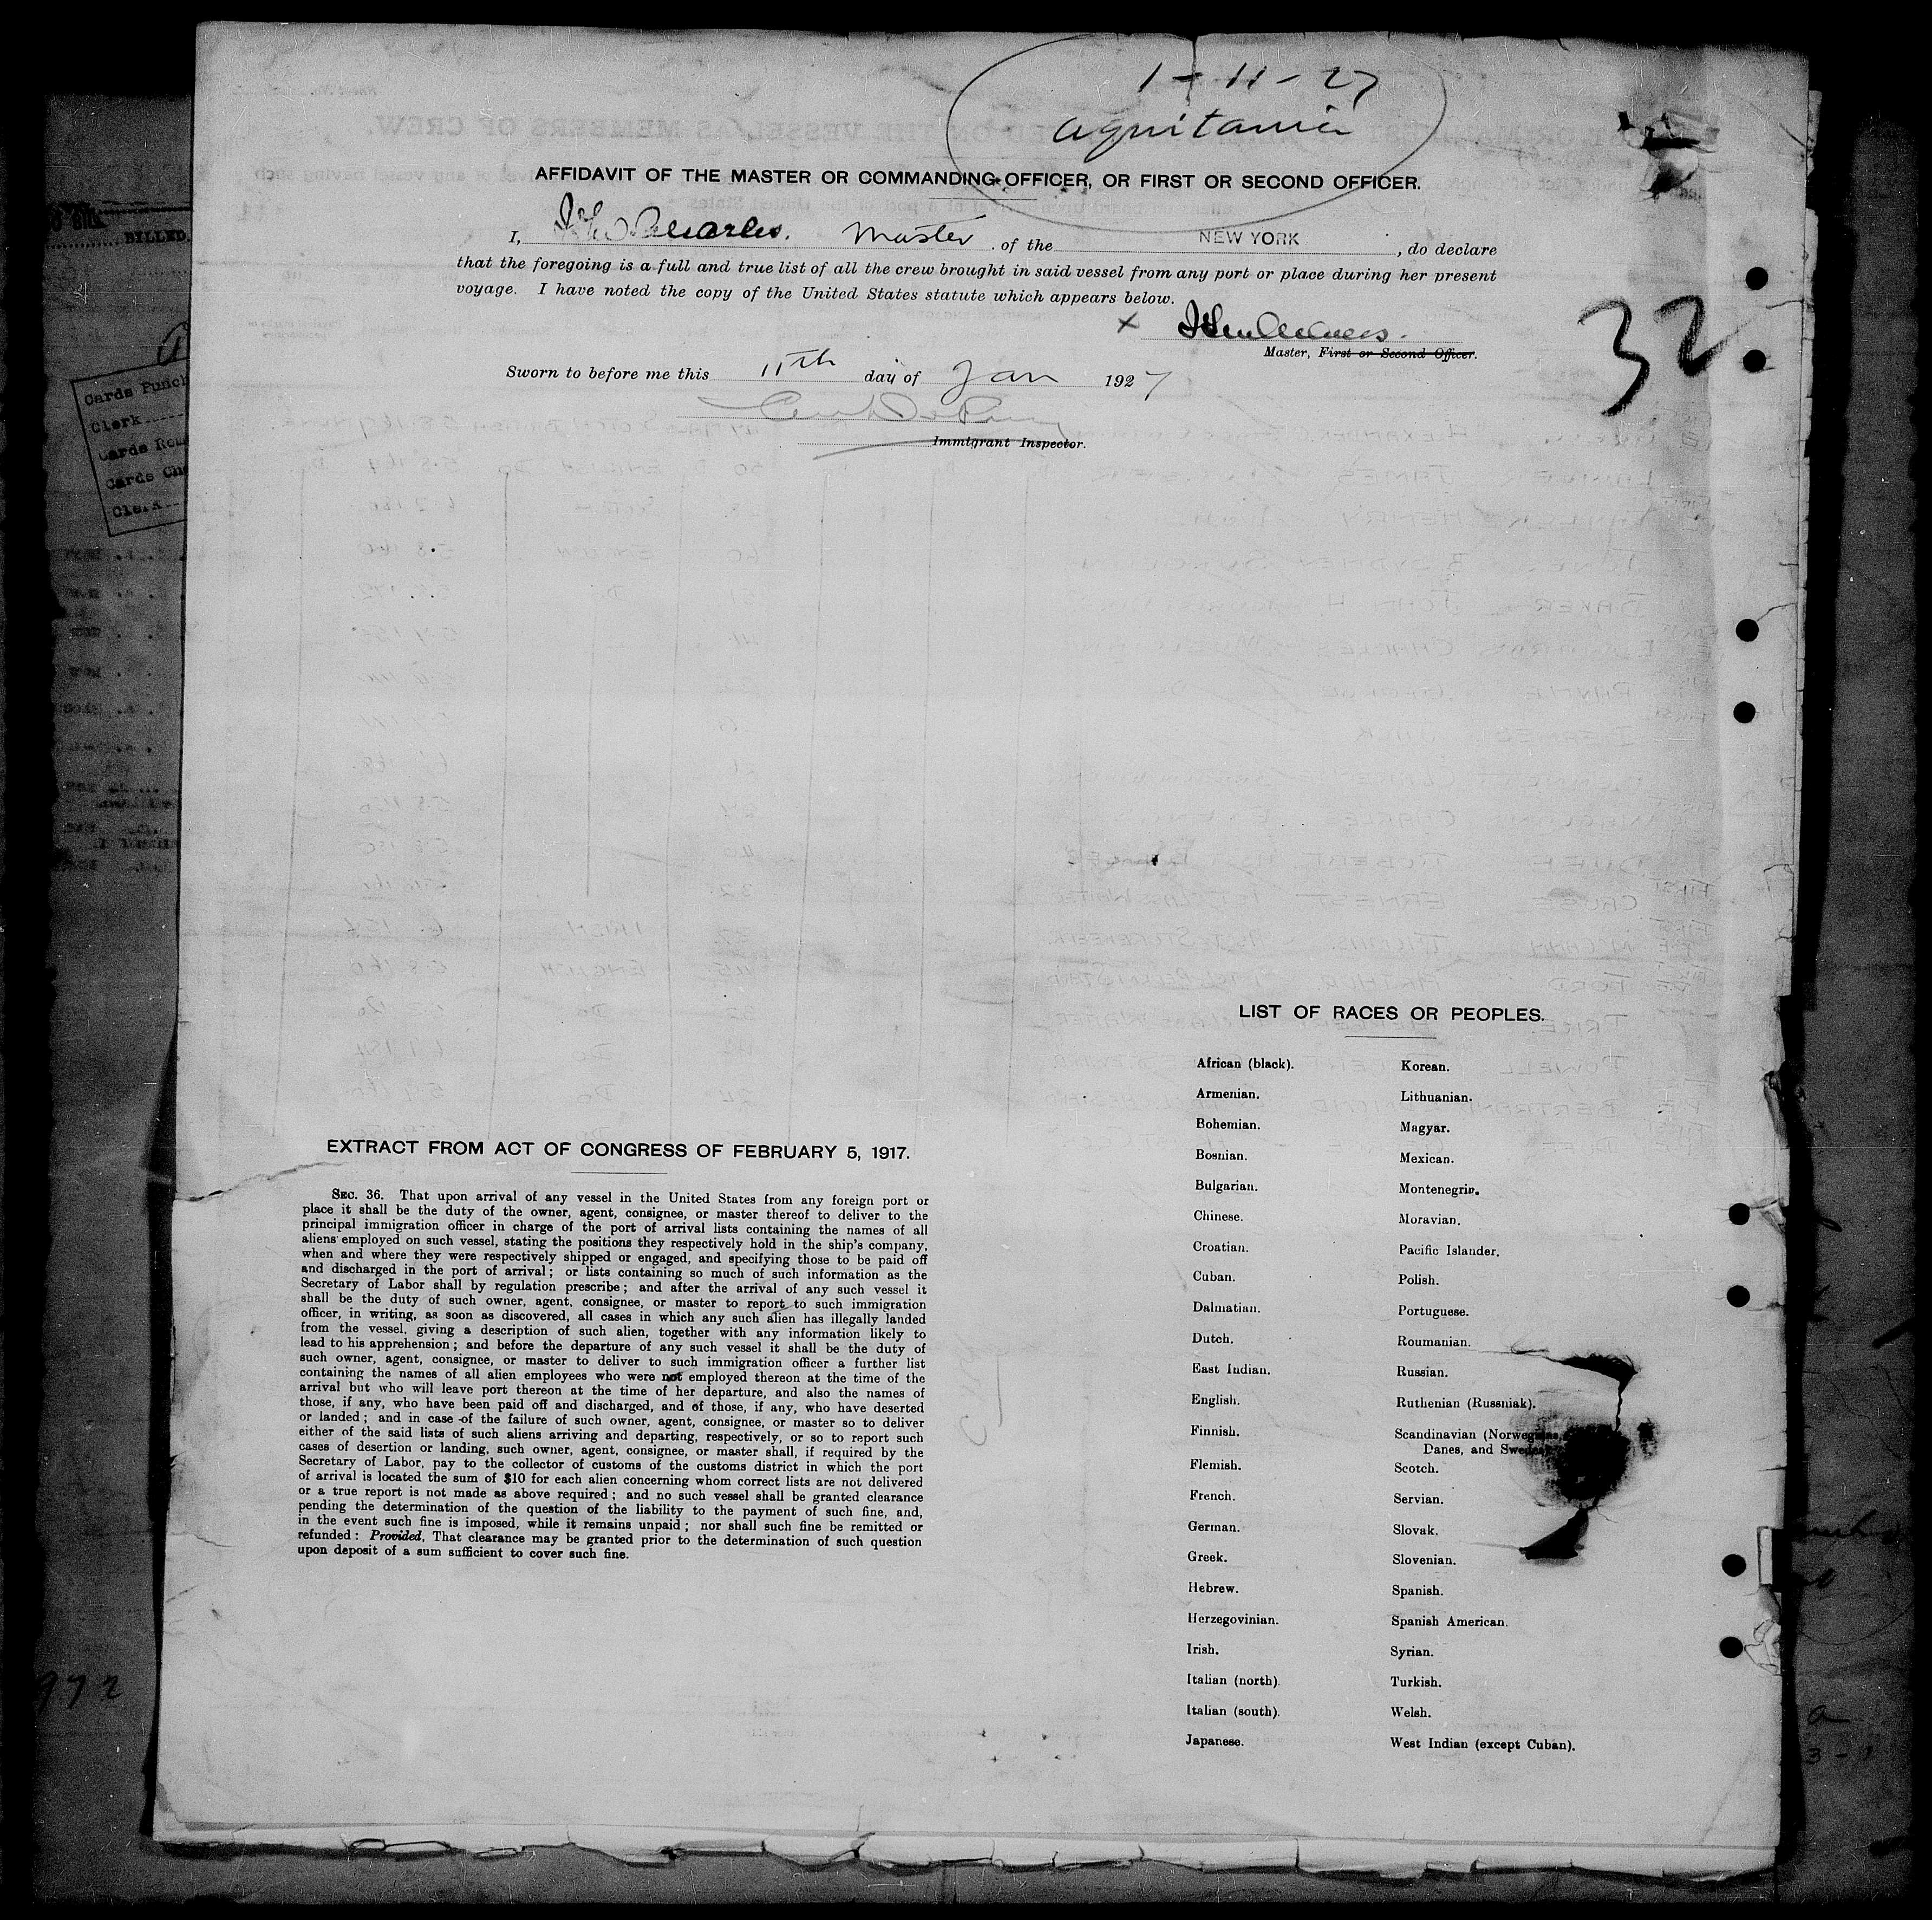 1-11-27
Aquitania
AFFIDAVIT OF THE MASTER OR COMMANDING OFFICER, OR FIRST OR SECOND OFFICER.
I, Charles. Master of the NEW YORK, do declare
that the foregoing is a full and true list of all the crew brought in said vessel from any port or place during her present
voyage. I have noted the copy of the United States statute which appears below.
x
32
Master, First or Second Officer.
Sworn to before me this 11th day of Jan 1927
Immigrant Inspector.
BILLED.
Cards Punch
Clerk
Cards
Cards
Clerk
LIST OF RACES OR PEOPLES.
African (black).
Armenian.
Bohemian.
Bosnian.
Bulgarian.
Chinese.
Croatian.
Cuban.
Dalmatian.
Dutch.
East Indian.
English.
Finnish.
Flemish.
French.
German.
Greek.
Hebrew.
Herzegovinian.
Irish.
Italian (north).
Italian (south).
Japanese.
Korean.
Lithuanian.
Magyar.
Mexican.
Montenegrin.
Moravian.
Pacific Islander.
Polish.
Portuguese.
Roumanian.
Russian.
Ruthenian (Russniak).
Scandinavian (Norwegians,
Danes, and Swedes).
Scotch.
Servian.
Slovak.
Slovenian.
Spanish.
Spanish American.
Syrian.
Turkish.
Welsh.
West Indian (except Cuban).
EXTRACT FROM ACT OF CONGRESS OF FEBRUARY 5, 1917.
SEC. 36. That upon arrival of any vessel in the United States from any foreign port or
place it shall be the duty of the owner, agent, consignee, or master thereof to deliver to the
principal immigration officer in charge of the port of arrival lists containing the names of all
aliens employed on such vessel, stating the positions they respectively hold in the ship's company,
when and where they were respectively shipped or engaged, and specifying those to be paid off
and discharged in the port of arrival; or lists containing so much of such information as the
Secretary of Labor shall by regulation prescribe; and after the arrival of any such vessel it
shall be the duty of such owner, agent, consignee, or master to report to such immigration
officer, in writing, as soon as discovered, all cases in which any such alien has illegally landed
from the vessel, giving a description of such alien, together with any information likely to
lead to his apprehension; and before the departure of any such vessel it shall be the duty of
such owner, agent, consignee, or master to deliver to such immigration officer a further list
containing the names of all alien employees who were not employed thereon at the time of the
arrival but who will leave port thereon at the time of her departure, and also the names of
those, if any, who have been paid off and discharged, and of those, if any, who have deserted
or landed; and in case of the failure of such owner, agent, consignee, or master so to deliver
either of the said lists of such aliens arriving and departing, respectively, or so to report such
cases of desertion or landing, such owner, agent, consignee, or master shall, if required by the
Secretary of Labor, pay to the collector of customs of the customs district in which the port
of arrival is located the sum of $10 for each alien concerning whom correct lists are not delivered
or a true report is not made as above required; and no such vessel shall be granted clearance
pending the determination of the question of the liability to the payment of such fine, and,
in the event such fine is imposed, while it remains unpaid; nor shall such fine be remitted or
refunded: Provided, That clearance may be granted prior to the determination of such question
upon deposit of a sum sufficient to cover such fine.
972